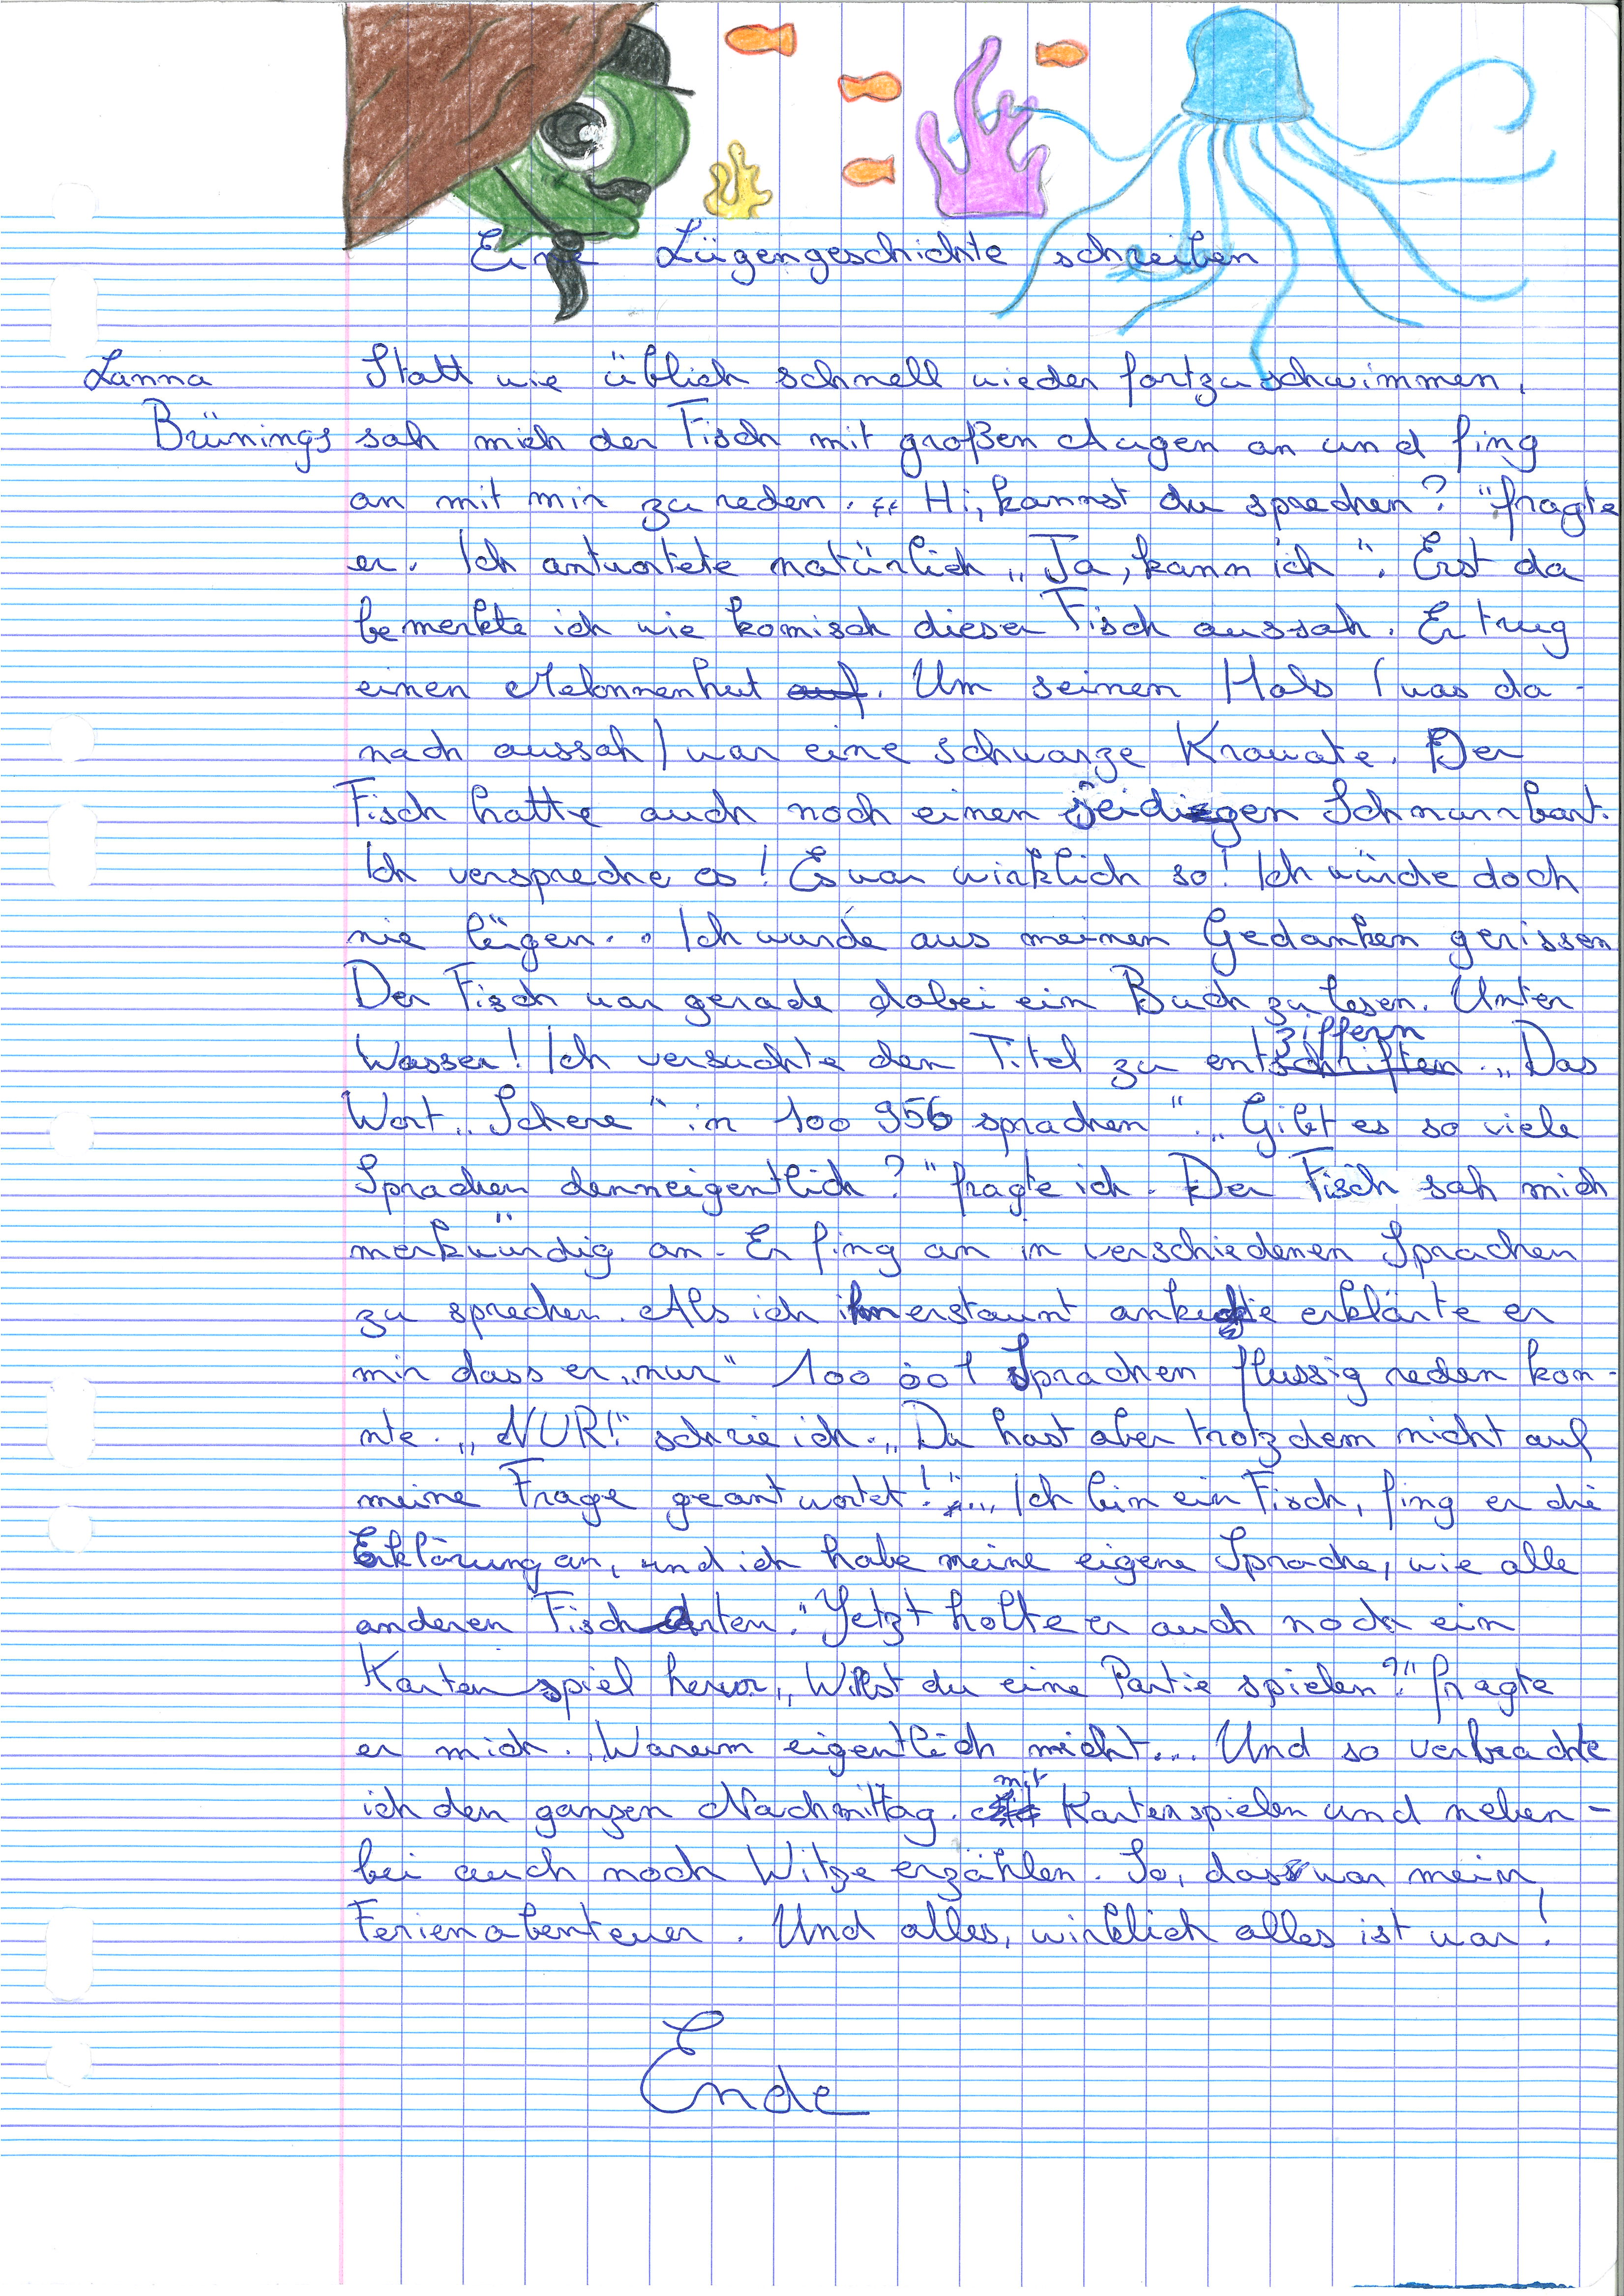 Eine Lügengeschichte schreiben
Lanna Statt wie üblich schnell wieder fortzuschwimmen,
Brünings sah mich der Fisch mit großen Augen an und fing
an mit mir zu reden. „ Hi, kannst du sprechen? " fragte
er. Ich antwortete natürlich „Ja, kann ich". Erst da
bemerkte ich wie komisch dieser Fisch aussah. Er trug
einen Melonnenhut auf. Um seinen Hals (was da-
nach aussah) war eine schwarze Kravate. Der
Fisch hatte auch noch einen seidigen Schnurrbart.
Ich verspreche es! Es war wirklich so! Ich würde doch
nie lügen.. Ich wurde aus meinen Gedanken gerissen
Der Fisch war gerade dabei ein Buch zu lesen. Unter
Wasser! Ich versuchte den Titel zu entziffern. „Das
Wort „Schere" in 100 956 sprachen". „Gibt es so viele
Sprachen denneigentlich?" fragte ich. Der Fisch sah mich
merkwürdig an. Er fing an in verschiedenen Sprachen
zu sprechen. Als ich ihn erstaunt ankuckte erklärte er
mir dass er „nur" 100 001 Sprachen flussig reden kon-
nte. „NUR!" schrie ich. „Du hast aber trotzdem nicht auf
meine Frage geantwortet!" „Ich bin ein Fisch, fing er die
Erklärung an, und ich habe meine eigene Sprache, wie alle
anderen Fischarten." Jetzt holte er auch noch ein
Kartenspiel hervor „Willst du eine Partie spielen?" fragte
er mich. Warum eigentlich nicht... Und so verbrachte
ich den ganzen Nachmittag. mit Kartenspielen und neben-
bei auch noch Witze erzählen. So, das war mein
Ferienabenteuer. Und alles, wirklich alles ist war!
Ende